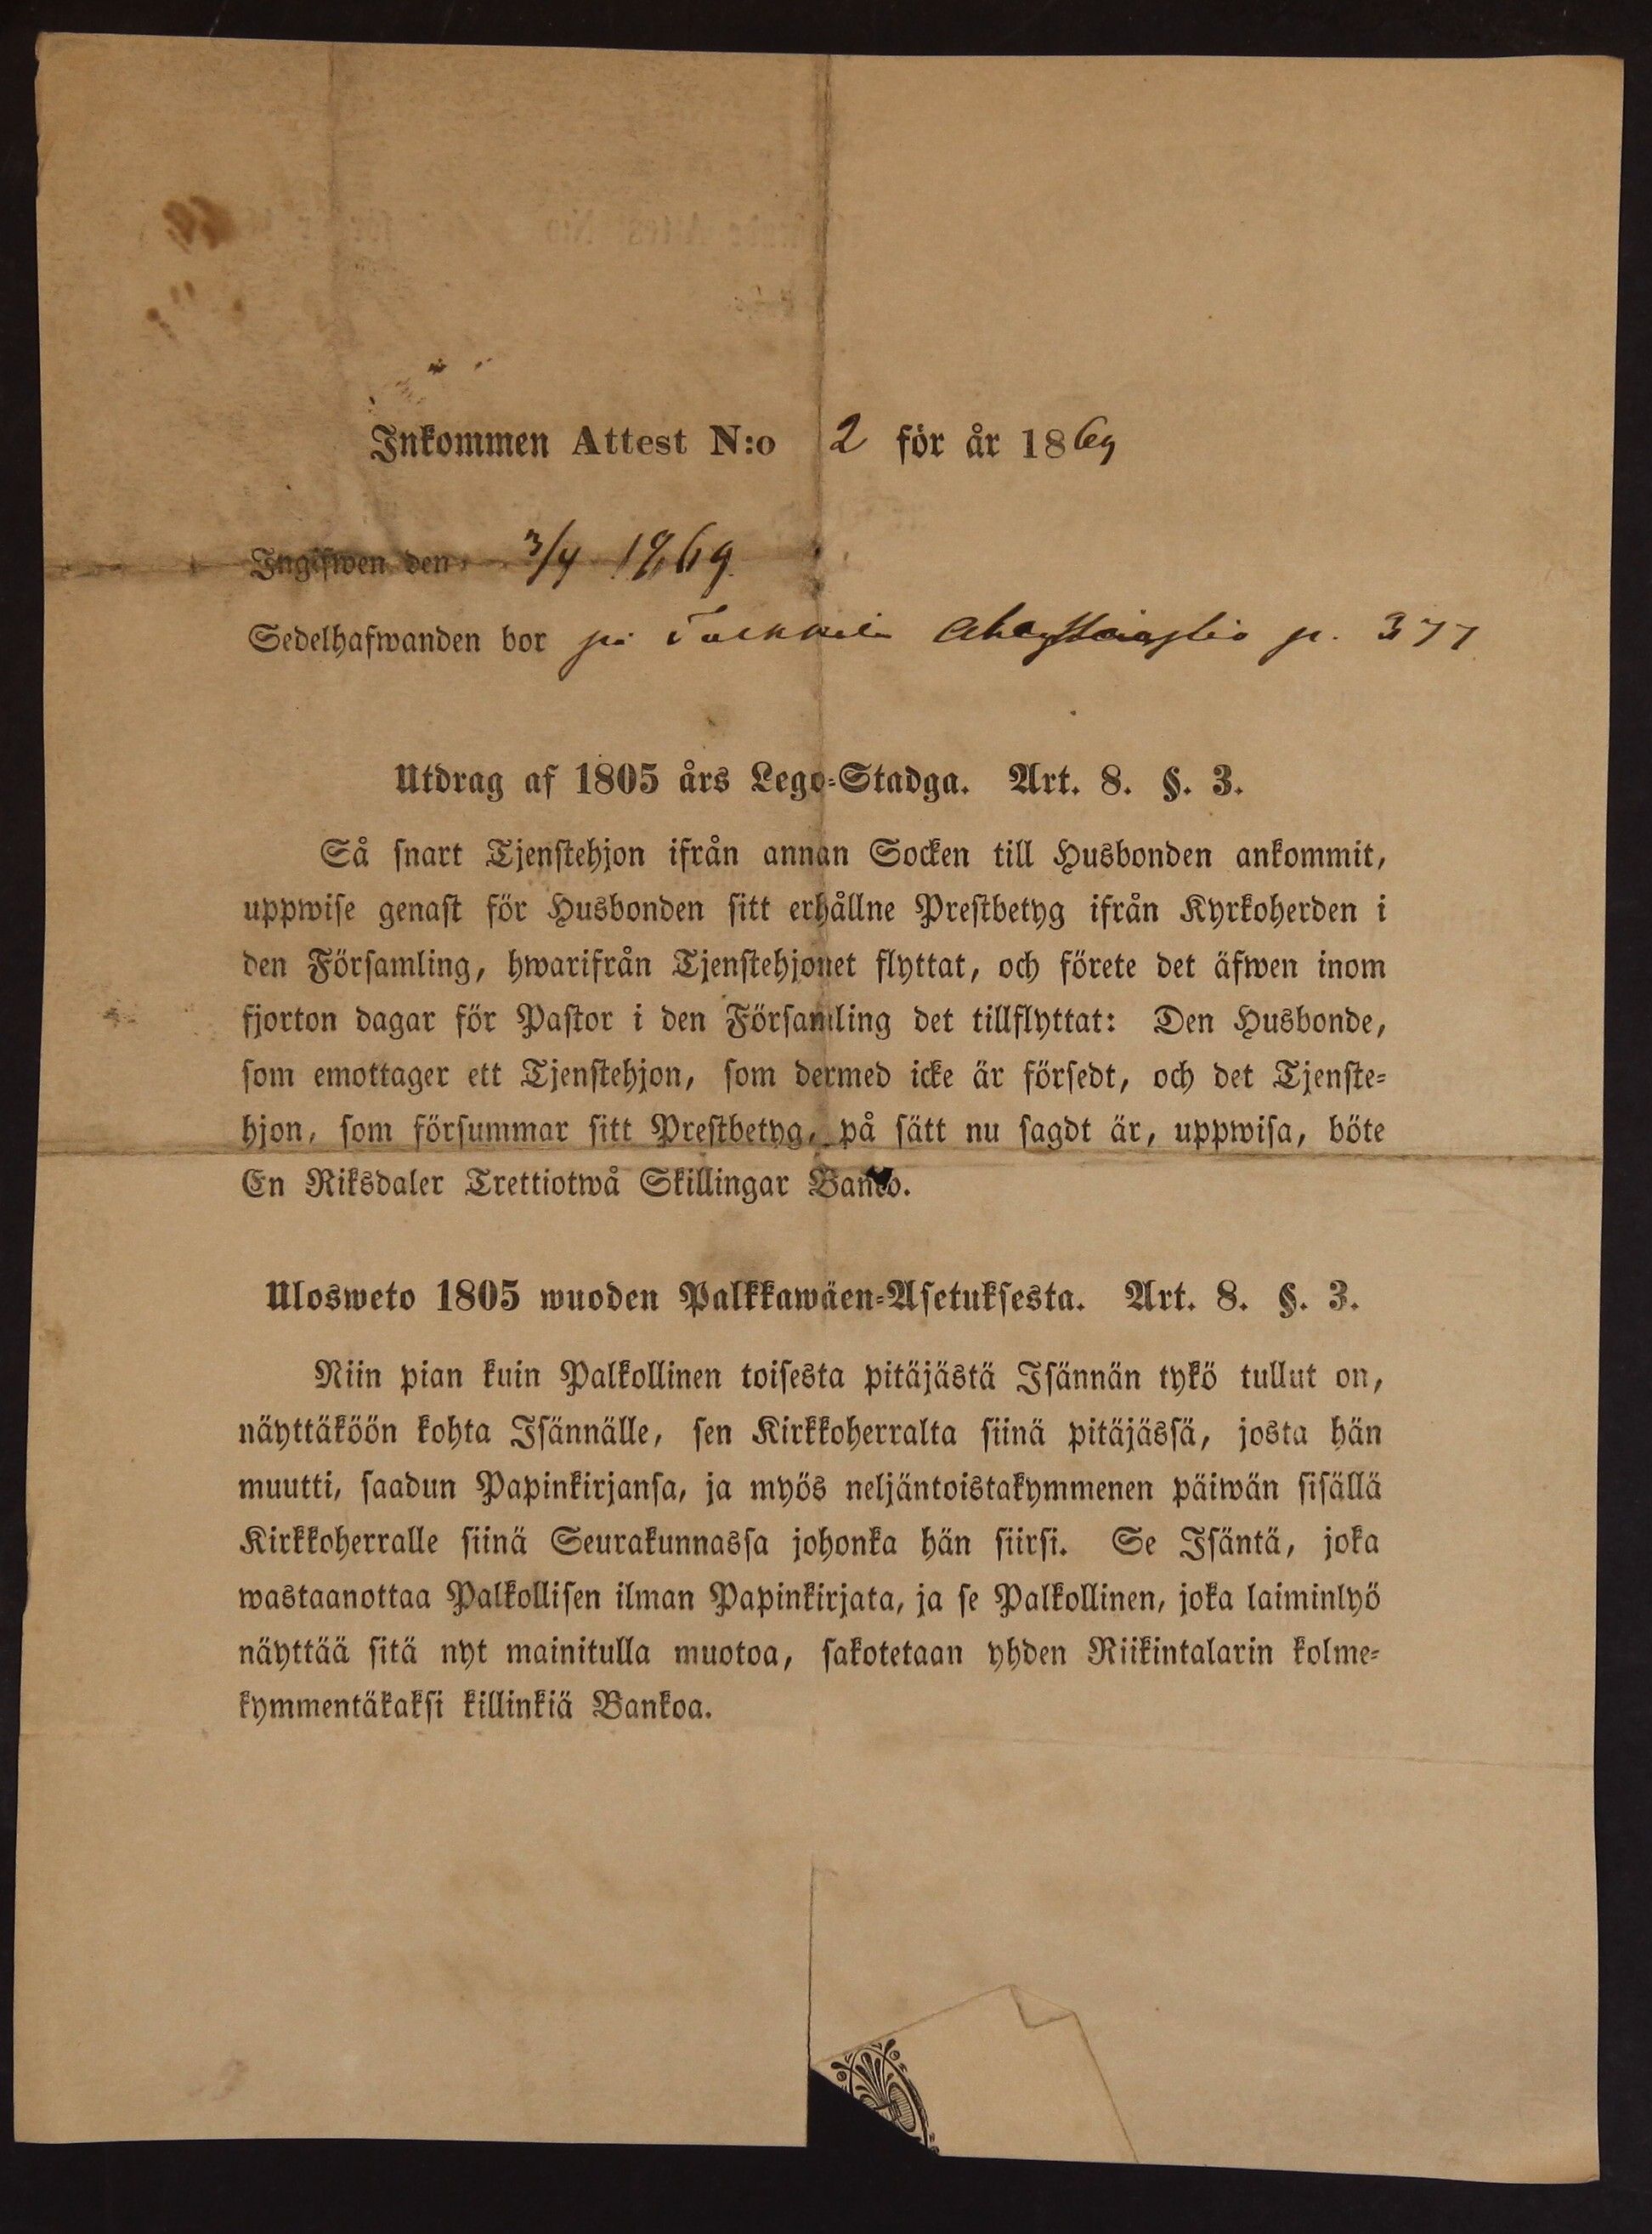 Inkommen Attest N:o 2 för år 1869
Ingifwen den 3/4 1869
Sedelhafwanden bor på p. 377
Utdrag af 1805 års Lego-Stadga. Art. 8. §. 3.
Så snart Tjenstehjon ifrån annan Socken till Husbonden ankommit,
uppwise genast för Husbonden sitt erhållne Prestbetyg ifrån Kyrkoherden i
den Församling, hwarifrån Tjenstehjonet flyttat, och förete det äfwen inom
fjorton dagar för Pastor i den Församling det tillflyttat: Den Husbonde,
som emottager ett Tjenstehjon, som dermed icke är försedt, och det Tjenste-
hjon, som försummar sitt Prestbetyg, på sätt nu sagdt är, uppwisa, böte
En Riksdaler Trettiotwå Skillingar Banco.
Ulosweto 1805 wuoden Palkkawäen-Asetuksesta. Art. 8. §. 3.
Niin pian kuin Palkollinen toisesta pitäjästä Isännän tykö tullut on,
näyttäköön kohta Isännälle, sen Kirkkoherralta siinä pitäjässä, josta hän
muutti, saadun Papinkirjansa, ja myös neljäntoistakymmenen päiwän sisällä
Kirkkoherralle siinä Seurakunnassa johonka hän siirsi. Se Isäntä, joka
wastaanottaa Palkollisen ilman Papinkirjata, ja se Palkollinen, joka laiminlyö
näyttää sitä nyt mainitulla muotoa, sakotetaan yhden Riikintalarin kolme-
kymmentäkaksi killinkiä Bankoa.